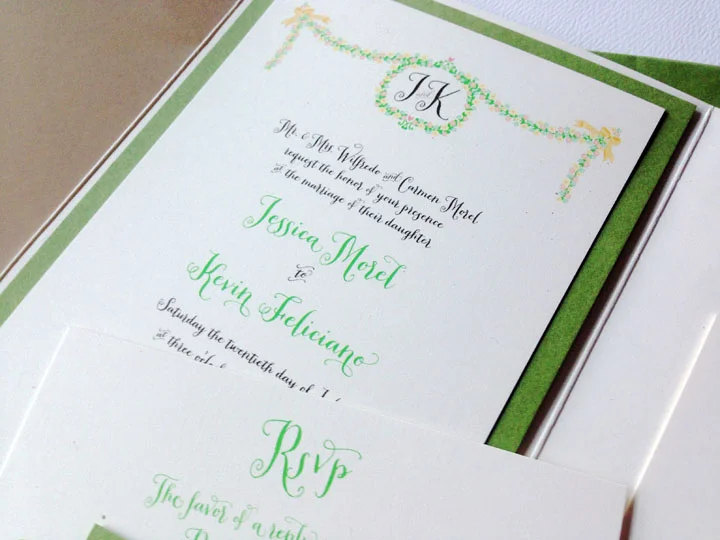 J and K
Mr. & Mrs. Wilfredo and Carmen Morel
request the honor of your presence
at the marriage of their daughter
Jessica Morel
to
Kevin Feliciano
Saturday the twentieth day of
at three
Rsvp
The favor of a reply